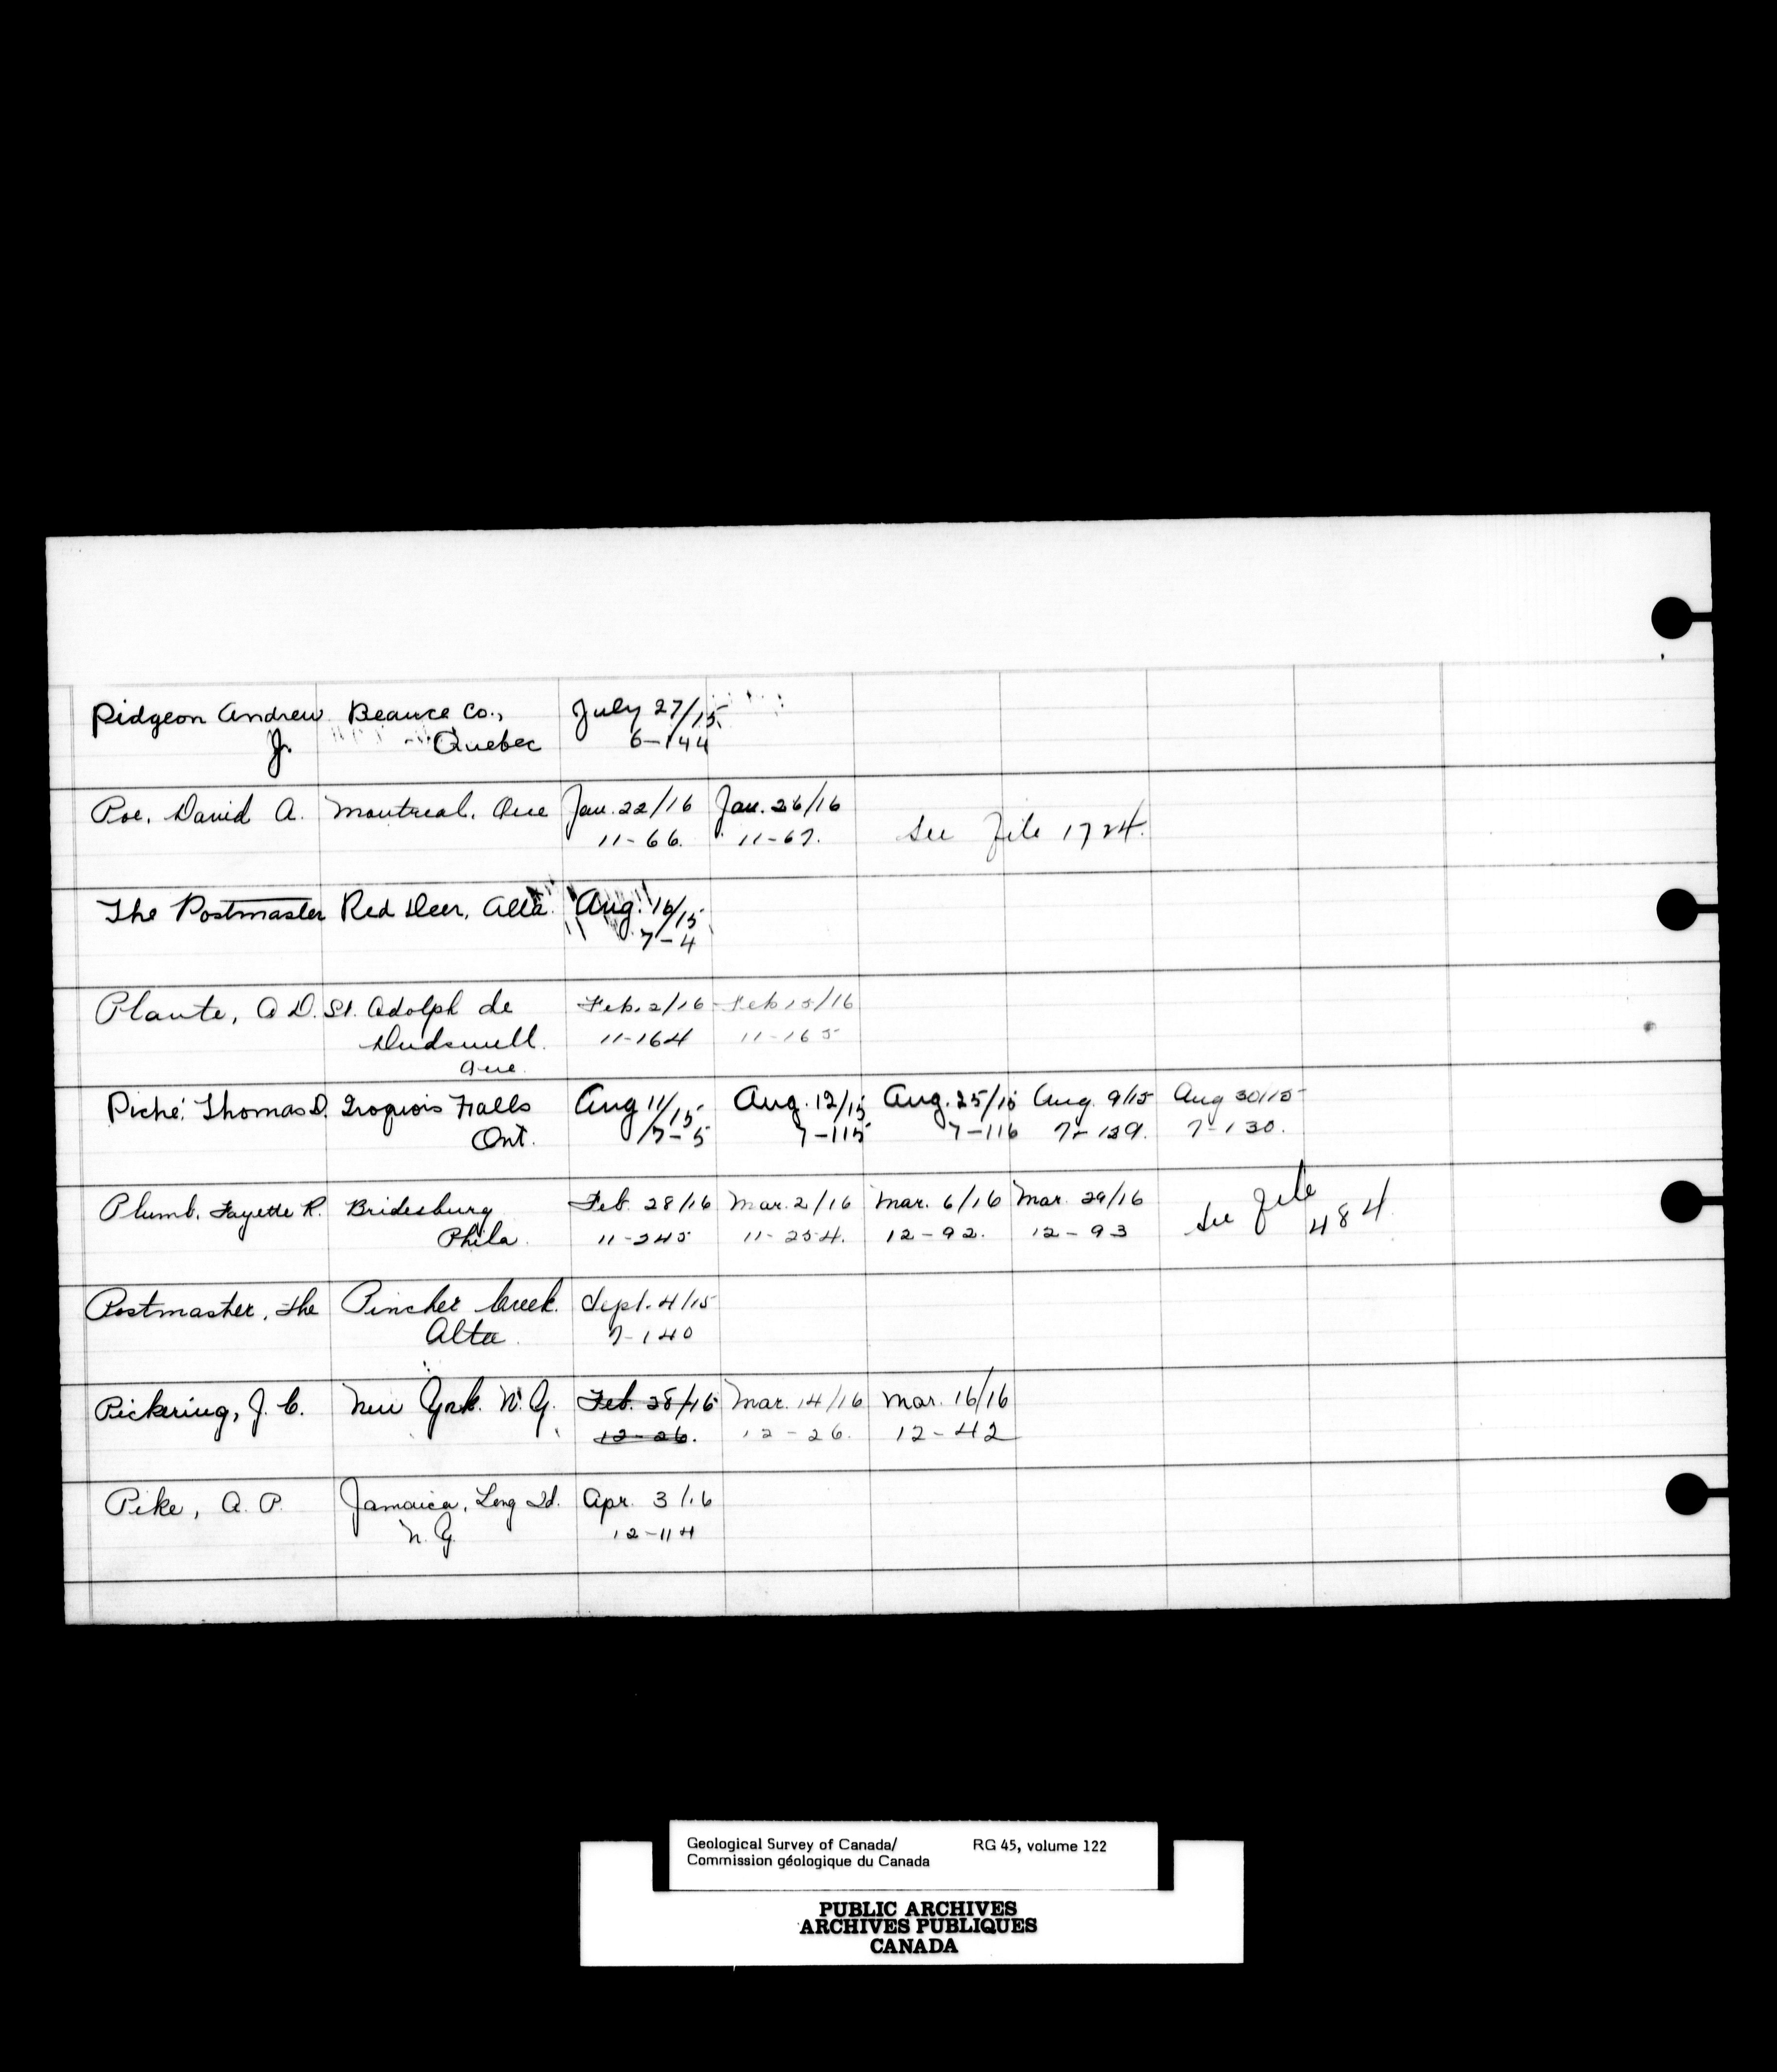 Pidgeon Andrew Beauce Co., July 27/15
J. Quebec 6-144
Poe, David A. Montreal, Que Jan. 22/16 Jan. 26/16 See File 1724.
11-66. 11-67.
The Postmaster Red Deer, Alta. Aug. 16/15
7-4
Plante, A D. St. Adolph de Feb. 2/16 Feb 15/16
Dudswell 11-164 11-165
Que
Piché, Thomas D. Iroquois Falls Aug 11/15 Aug. 12/15 Aug. 25/15 Aug. 9/15 Aug 30/15
Ont. 7-5 7-115 7-116 7-129. 7-130.
Plumb, Fayette R. Bridesburg Feb. 28/16 Mar. 2/16 Mar. 6/16 Mar. 29/16 See File
Phila. 11-245 11-254. 12-92. 12-93 484
Postmaster, The Pincher Creek. Sept. 4/15
Alta. 7-140
Pickering, J. C. New York. N.Y. Feb. 28/16 Mar. 14/16 Mar. 16/16
12-26. 12-26. 12-42
Pike, A. P. Jamaica, Long Id. Apr. 3/16
N.Y. 12-114
Geological Survey of Canada/ RG 45, volume 122
Commission géologique du Canada
PUBLIC ARCHIVES
ARCHIVES PUBLIQUES
CANADA